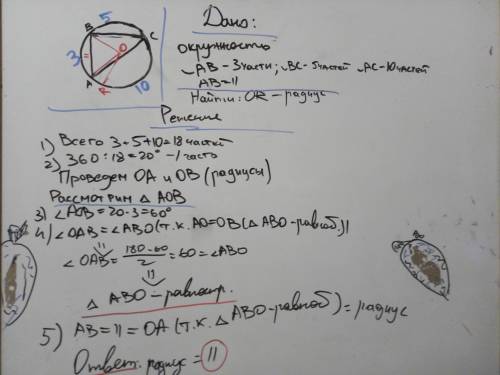 B 5 C
3 O
A R 10
Дано:
окружность
◡AB - 3 части; ◡BC - 5 частей ◡AC - 10 частей
AB = 11
Найти: OR - радиус
Решение
1) Всего 3+5+10=18 частей
2) 360:18=20° - 1 часть
Проведем OA и OB (радиусы)
Рассмотрим △ AOB
3) ∠AOB = 20·3=60°
4) ∠OAB = ∠ABO (т.к. AO=OB (△ ABO - равноб.))
∠ OAB = (180-60)/2 = 60 = ∠ABO
△ ABO - равностр.
5) AB = 11 = OA (т.к. △ ABO - равноб) = радиус
Ответ: радиус = 11